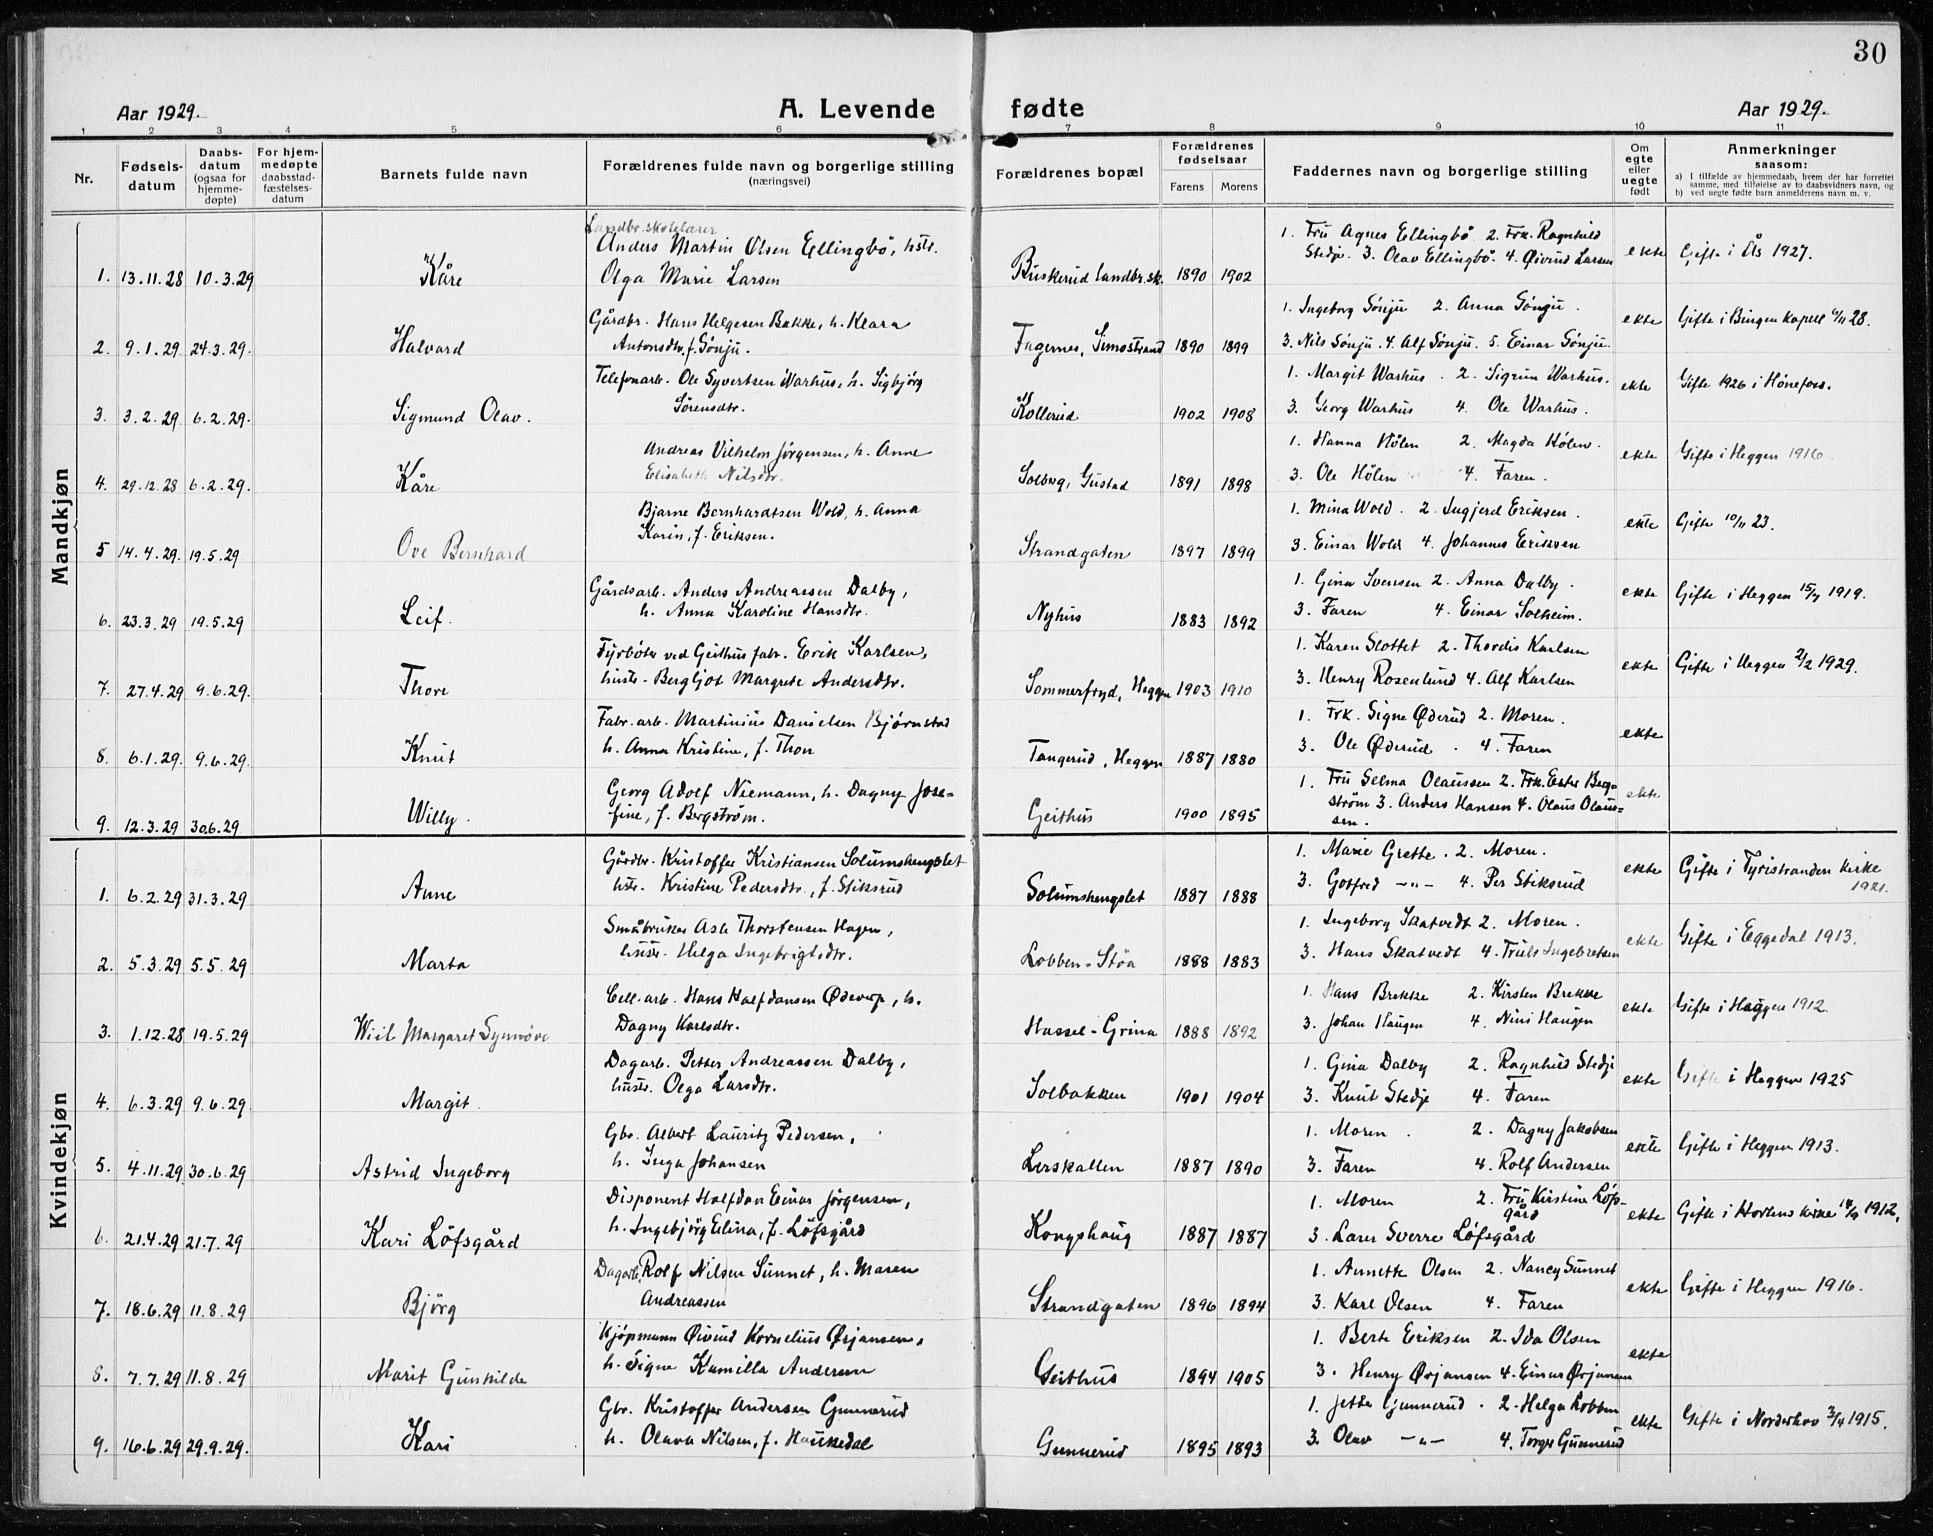 30
Aar 1929. A. Levende fødte Aar 1929.
1 2 3 4 5 6 7 8 9 10 11
Nr. Fødsels-datum Daabs-datum (ogsaa for hjemme-døpte) For hjem-medøpte daabsstad-fæstelses-datum Barnets fulde navn Forældrenes fulde navn og borgerlige stilling (næringsvei) Forældrenes bopæl Forældrenes fødselsaar Farens Morens Faddernes navn og borgerlige stilling Om egte eller uegte født Anmerkninger saasom:
a) I tilfælde av hjemmedaab, hvem der har forrettet samme, med tilføielse av to daabsvidners navn, og
b) ved uegte fødte barn anmelderens navn m. v.
Mandkjøn
Landbr.skolelærer
Anders Martin Olsen Ellingbø, hstr. 1. Fru Agnes Ellingbø 2. Frk. Ragnhild
Stedje. 3. Olav Ellingbø. 4. Øivind Larsen ekte Gifte i Ås 1927.
1. 13.11.28 10.3.29 Kåre Olga Marie Larsen Buskerud landbr.sk. 1890 1902
Gårdbr. Hans Helgesen Bakke, h. Klara 1. Ingeborg Sønju 2. Anna Sønju. ekte Gifte i Bingen kapell 6/11 28.
2. 9.1.29 24.3.29. Halvard Antonsdtr. f. Sønju. Fagernes, Simostrand 1890 1899 3. Nils Sønju. 4. Alf Sønju. 5. Einar Sønju.
Telefonarb. Ole Syvertsen Warhus, h. Sigbjørg 1. Margit Warhus. 2. Sigrun Warhus. ekte Gifte 1926 i Hønefoss.
3. 3.2.29 6.2.29. Sigmund Olav. Sørensdtr. Kollerud 1902 1908 3. Georg Warhus 4. Ole Warhus.
Andreas Vilhelm Jørgensen, h. Anne 1. Hanna Hölen 2. Magda Hölen. ekte Gifte i Heggen 1916.
4. 29.12.28 6.2.29. Kåre Elisabeth Nilsdtr. Solberg, Gustad 1891 1898 3. Ole Hölen 4. Faren.
Bjarne Bernhardtsen Wold, h. Anna 1. Mina Wold. 2. Ingjerd Eriksen. ekte Gifte 10/11 23.
5 14.4.29. 19.5.29 Ove Bernhard Karin, f. Eriksen. Strandgaten 1897 1899 3. Einar Wold 4. Johannes Eriksen
Gårdsarb. Anders Andreassen Dalby, 1. Gina Svensen 2. Anna Dalby. ekte Gifte i Heggen 15/7 1919.
6. 23.3.29 19.5.29 Leif. h. Anna Karoline Hansdtr. Nyhus 1883 1892 3. Faren 4. Einar Solheim.
Fyrbøter ved Geithus fabr. Erik Karlsen, 1. Karen Slottet 2. Thordis Karlsen ekte Gifte i Heggen 2/2 1929.
7. 27.4.29 9.6.29. Thore hustr. Bergljot Margrete Andersdtr. Sommerfryd, Heggen 1903 1910 3. Henry Rosenlund 4. Alf Karlsen
Fabr.arb. Martinius Danielsen Bjørnstad 1. Frk. Signe Øderud 2. Moren. ekte
8. 6.1.29. 9.6.29. Knut h. Anna Kristine, f. Thon Tangerud, Heggen 1887 1880 3. Ole Øderud. 4. Faren
Georg Adolf Niemann, h. Dagny Jose- 1. Fru Selma Olaussen 2. Frk. Ester Berg-
9. 12.3.29 30.6.29 Willy. fine, f. Bergstrøm. Geithus 1900 1895 strøm 3. Anders Hansen 4. Olaus Olaus-sen. ekte
Kvindekjøn
Gårdbr. Kristoffer Kristiansen Solumshengslet 1. Marie Grette. 2. Moren. ekte Gifte i Tyristranden kirke 1921.
1. 6.2.29 31.3.29 Anne hstr. Kristine Pedersdtr., f. Stiksrud Solumshengslet 1887 1888 3. Gotfred -"- 4. Per Stiksrud
Småbruker Asle Thorstensen Hagen, 1. Ingeborg Skatvedt 2. Moren. ekte Gifte i Eggedal 1913.
2. 5.3.29 5.5.29 Marta hustr. Helga Ingebrigtsdtr. Lobben-Støa 1888 1883 3. Hans Skatvedt 4. Truls Ingebretsen
Cell.arb. Hans Halfdansen Ødeverp, h. 1. Hans Brekke 2. Kirsten Brekke ekte Gifte i Heggen 1912.
3. 1.12.28 19.5.29 Wiil Margaret Synnøve Dagny Karlsdtr. Hassel-Grina 1888 1892 3. Johan Haugen 4. Nini Haugen
Dagarb. Petter Andreassen Dalby, 1. Gina Dalby 2. Ragnhild Stedje ekte Gifte i Heggen 1925
4. 6.3.29 9.6.29. Margit. hustr. Olga Larsdtr. Solbakken 1901 1904 3. Knut Stedje 4. Faren
Gbr. Albert Lauritz Pedersen, 1. Moren. 2. Dagny Jakobsen ekte Gifte i Heggen 1913.
5. 4.11.29 30.6.29 Astrid Ingeborg h. Inga Johansen Lerskallen 1887 1890 3. Faren 4. Rolf Andersen
Disponent Halfdan Einar Jørgensen, 1. Moren 2. Fru Kirstine Löfs-gård ekte Gifte i Hortens kirke 14/9 1912.
6. 21.4.29 21.7.29 Kari Löfsgård h. Ingebjørg Elina, f. Löfsgård Kongshaug 1887 1887 3. Lærer Sverre Löfsgård
Dagarb. Rolf Nilsen Sunnet, h. Maren 1. Annette Olsen 2. Nancy Sunnet ekte Gifte i Heggen 1916.
7. 18.6.29 11.8.29 Björg Andreassen Strandgaten 1896 1894 3. Karl Olsen 4. Faren
Kjøpmann Øivind Kornelius Ørjansen, 1. Berte Eriksen 2. Ida Olsen ekte
8. 7.7.29 11.8.29 Marit Gunhilde h. Signe Kamilla Andersen Geithus 1894 1905 3. Henry Ørjansen 4. Einar Ørjansen
Gbr. Kristoffer Andersen Gunnerud 1. Jetta Gunnerud. 2. Helga Lobben ekte Gifte i Norderhov 3/4 1915.
9. 16.6.29 29.9.29. Kari h. Olava Nilsen, f. Haukedal Gunnerud 1895 1893 3. Olav -"- 4. Torge Gunnerud